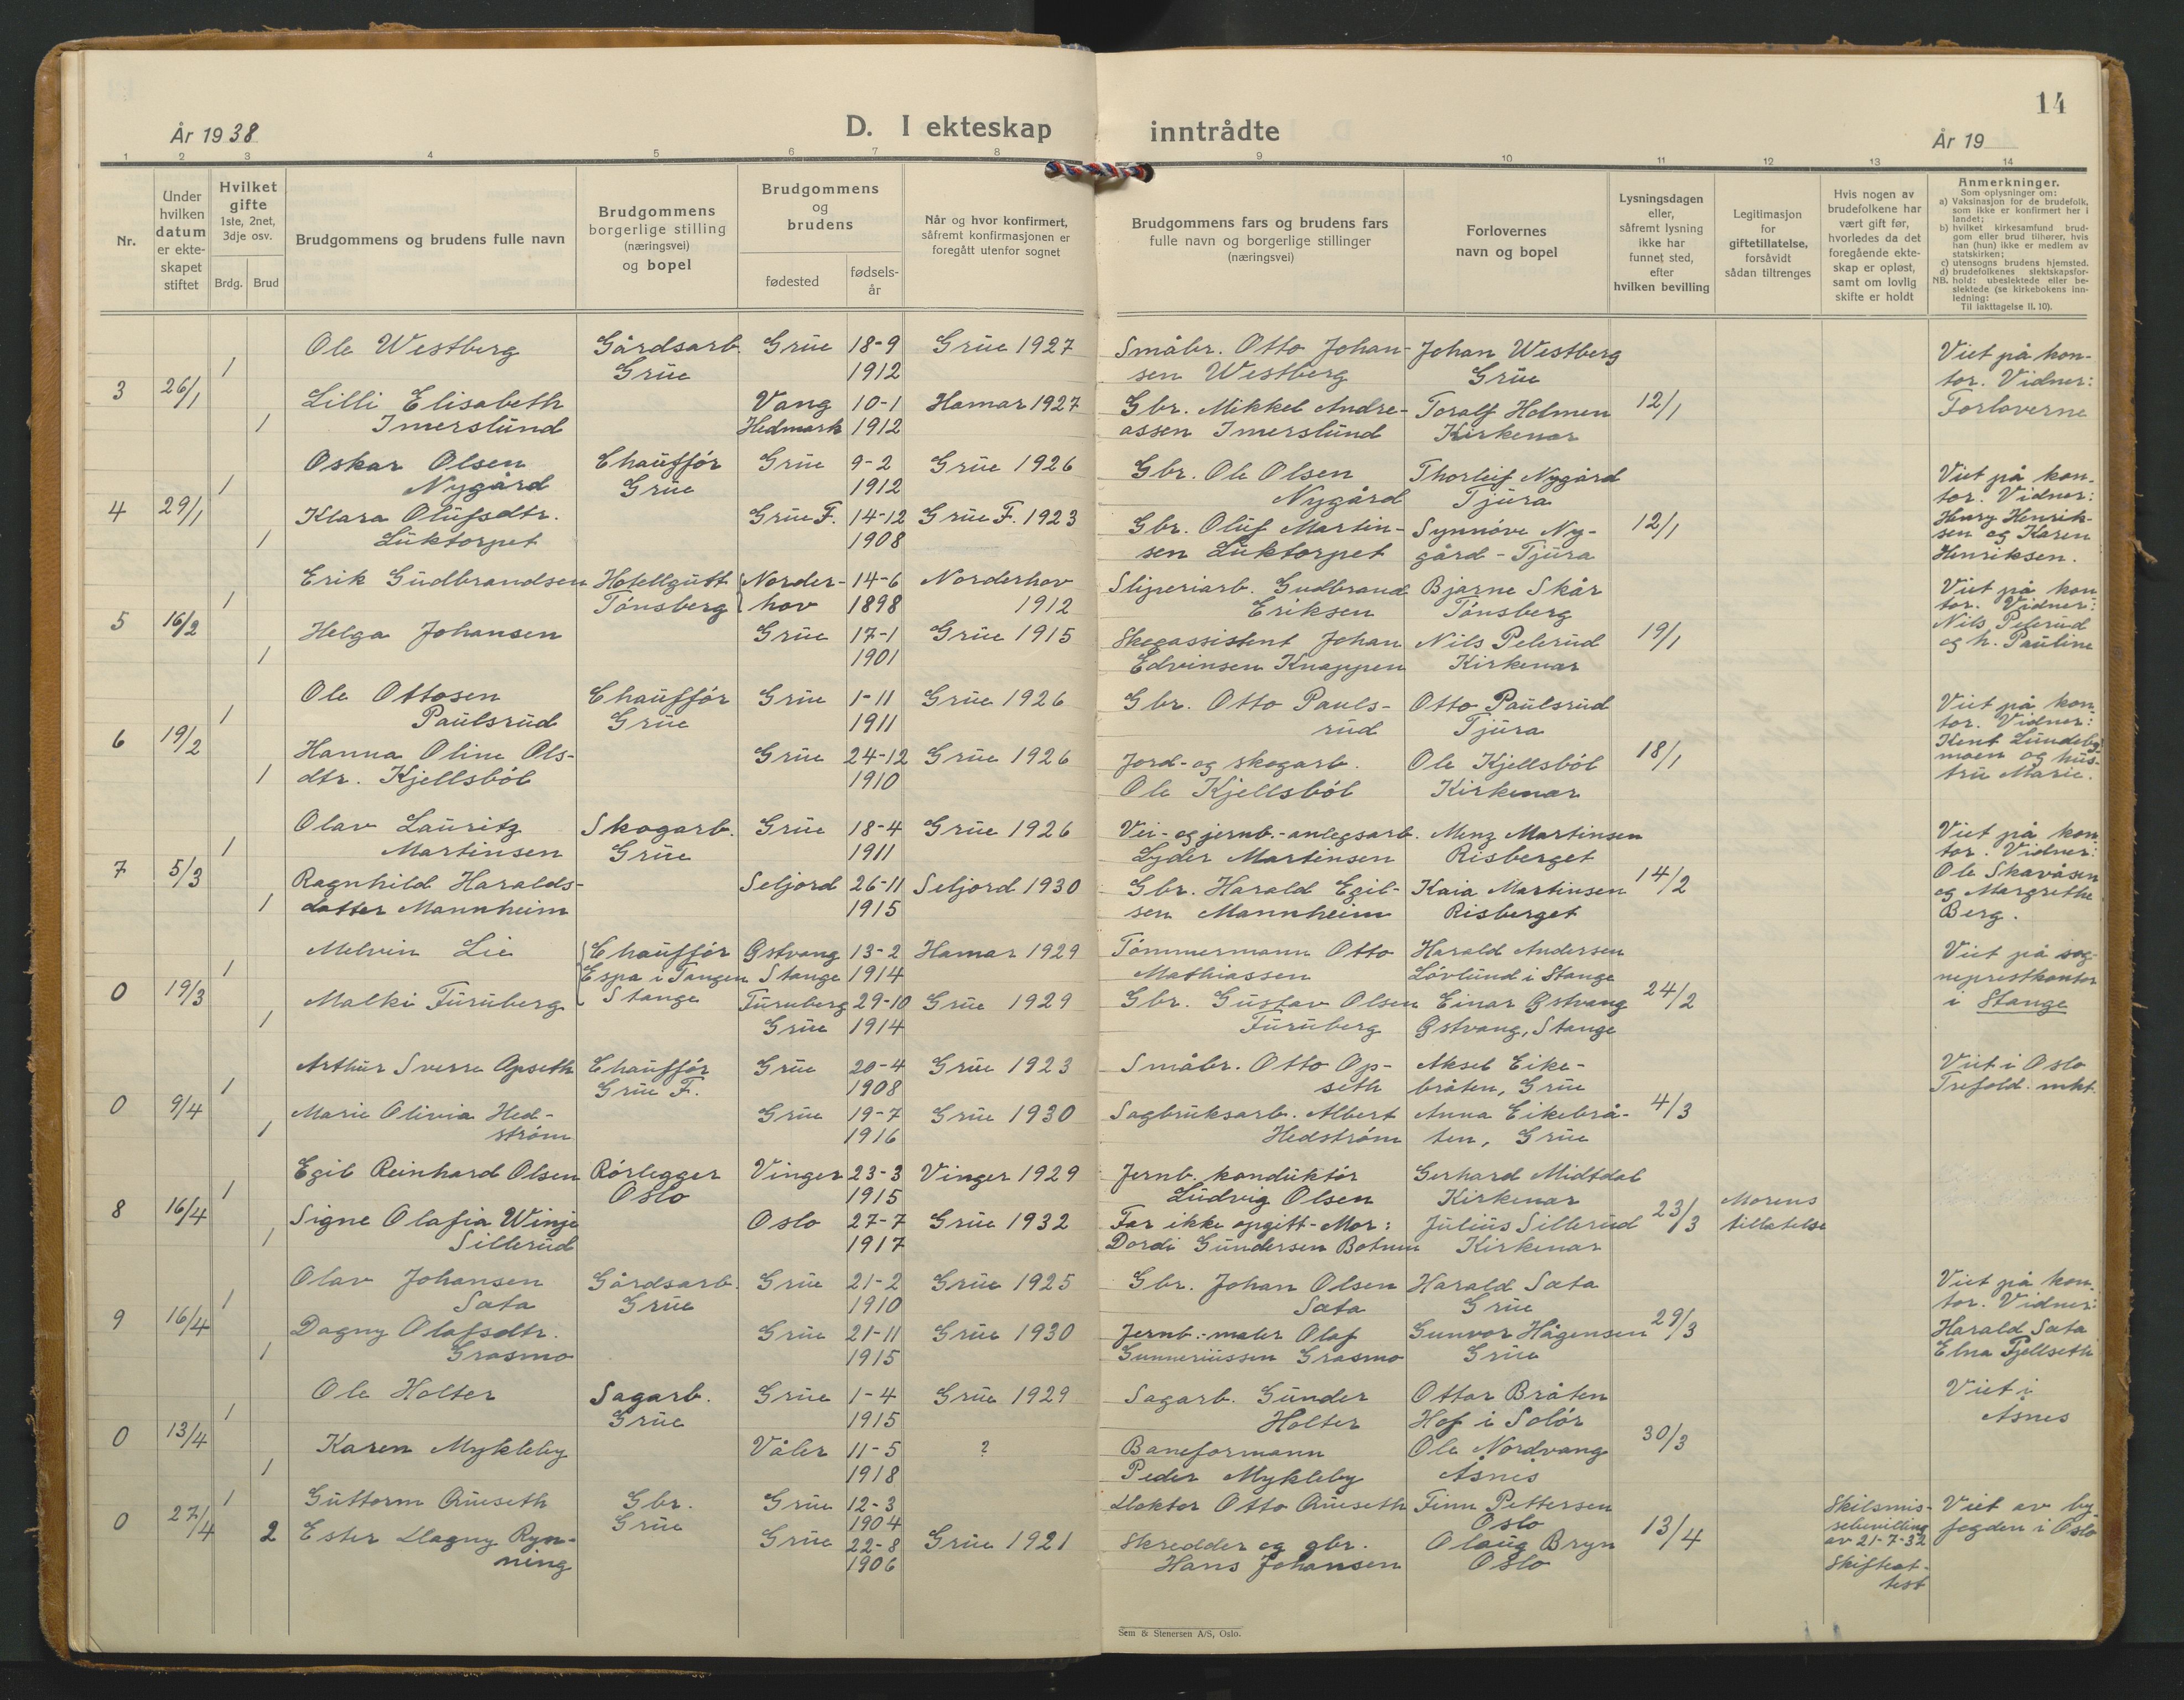 14
År 1938
D. I ekteskap inntrådte
År 19
1 2 3 4 5 6 7 8 9 10 11 12 13 14
Nr.
Under hvilken datum er ekte-skapet stiftet
Hvilket gifte 1ste, 2net, 3dje osv.
Brdg. Brud
Brudgommens og brudens fulle navn
Brudgommens borgerlige stilling (næringsvei) og bopel
Brudgommens og brudens
fødested
fødsels-år
Når og hvor konfirmert, såfremt konfirmasjonen er foregått utenfor sognet
Brudgommens fars og brudens fars fulle navn og borgerlige stillinger (næringsvei)
Forlovernes navn og bopel
Lysningsdagen eller, såfremt lysning ikke har funnet sted, efter hvilken bevilling
Legitimasjon for giftetillatelse, forsåvidt sådan tiltrenges
Hvis nogen av brudefolkene har vært gift før, hvorledes da det foregående ekte-skap er opløst, samt om lovlig skifte er holdt
Anmerkninger.
Som oplysninger om:
a) Vaksinasjon for de brudefolk, som ikke er konfirmert her i landet;
b) hvilket kirkesamfund brud-gom eller brud tilhører, hvis han (hun) ikke er medlem av statskirken;
c) utensogns brudens hjemsted.
d) brudefolkenes slektskapsfor-hold: ubeslektede eller be-slektede (se kirkebokens inn-ledning:
NB.
Til iakttagelse II. 10).
Ole Westberg Gårdsarb. Grue 18-9 Grue 1927 Småbr. Otto Johan- Johan Westberg Viet på kon-
1 Grue 1912 sen Westberg Grue tor. Vidner:
3 26/1 Lilli Elisabeth Vang 10-1 Hamar 1927 Gbr. Mikkel Andre- Toralf Holmen 12/1 Forloverne
1 Imerslund Hedmark 1912 assen Imerslund Kirkenær
Oskar Olsen Chauffør Grue 9-2 Grue 1926 Gbr. Ole Olsen Thorleif Nygård Viet på kon-
1 Nygård Grue 1912 Nygård Tjura tor. Vidner:
4 29/1 Klara Olufsdtr. Grue F. 14-12 Grue F. 1923 Gbr. Oluf Martin- Synnöve Ny- 12/1 Henry Henrik-
1 Luktorpet 1908 sen Luktorpet gård - Tjura sen og Karen
Henriksen.
Erik Gudbrandsen Hotellgutt Norder- 14-6 Norderhov Sliperiarb. Gudbrand Bjarne Skår Viet på kon
1 Tönsberg hov 1898 1912 Eriksen Tönsberg tor. Vidner:
5 16/2 Helga Johansen Grue 17-1 Grue 1915 Skogassistent Johan Nils Pelerud 19/1 Nils Pelerud
1 1901 Edvinsen Knappen Kirkenær og h. Pauline
Ole Ottosen Chauffør Grue 1-11 Grue 1926 Gbr. Otto Pauls- Otto Paulsrud Viet på kon
1 Paulsrud Grue 1911 rud Tjura tor. Vidner:
6 19/2 Hanna Oline Ols- Grue 24-12 Grue 1926 Jord- og skogarb. Ole Kjellsböl 18/1 Kent Lundeby-
1 dtr. Kjellsböl 1910 Ole Kjellsböl Kirkenær moen og hus-
tru Marie.
Olav Lauritz Skogarb. Grue 18-4 Grue 1926 Vei- og jernb.-anlegsarb. Menz Martinsen Viet på kon
1 Martinsen Grue 1911 Lyder Martinsen Risberget tor. Vidner:
7 5/3 Ragnhild Haralds- Seljord 26-11 Seljord 1930 Gbr. Harald Egil- Kaia Martinsen 14/2 Ole Skavåsen
1 datter Mannheim 1915 sen Mannheim Risberget og Margrethe
Berg.
Melvin Lie Chauffør Østvang 13-2 Hamar 1929 Tömmermann Otto Harald Andersen Viet på sog-
1 Espa i Tangen Stange 1914 Mathiassen Lövlund i Stange neprestkontor
0 19/3 Malki Furuberg Stange Furuberg 29-10 Grue 1929 Gbr. Gustav Olsen Einar Østvang 24/2 i Stange
1 Grue 1914 Furuberg Østvang, Stange
Arthur Sverre Opseth Chauffør Grue 20-4 Grue 1923 Småbr. Otto Op- Aksel Eike- Viet i Oslo
1 Grue F. 1908 seth bråten, Grue Trefold. mkt.
0 9/4 Marie Olivia Hed- Grue 19-7 Grue 1930 Sagbruksarb. Albert Anna Eikebrå- 4/3
1 ström 1916 Hedström ten, Grue
Egil Reinhard Olsen Rörlegger Vinger 23-3 Vinger 1929 Jernb. konduktör Gerhard Midtdal
1 Oslo 1915 Ludvig Olsen Kirkenær Morens
8 16/4 Signe Olafia Winje Oslo 27-7 Grue 1932 Far ikke opgitt - Mor: Julius Sillerud 23/3 tillatelse
1 Sillerud 1917 Dordi Gundersen Kirkenær
Olav Johansen Gårdsarb. Grue 21-2 Grue 1925 Gbr. Johan Olsen Harald Sæta Viet på kon-
1 Sæta Grue 1910 Sæta Grue tor. Vidner:
9 16/4 Dagny Olafsdtr. Grue 21-11 Grue 1930 Jernb.-maler Olaf Gunvor Hågensen 29/3 Harald Sæta
1 Grasmo 1915 Gunneriussen Grasmo Grue Elna Fjellseth
Ole Holter Sagarb. Grue 1-4 Grue 1929 Sagarb. Gunder Ottar Bråten Viet i
1 Grue 1915 Holter Hof i Solör Åsnes
0 13/4 Karen Mykleby Våler 11-5 ? Baneformann Ole Nordvang 30/3
1 1918 Peder Mykleby Åsnes
1 Guttorm Grueseth Gbr. Grue 12-3 Doktor Otto Grueseth Finn Pettersen Skilsmis- Viet av by
0 27/4 Grue 1904 Oslo sebevilling fogden i Oslo
2 Ester Dagny Ryn- Grue 22-8 Grue 1921 Skredder og gbr. Olaug Bryn 13/4 av 21-7-32
ning 1906 Hans Johansen Oslo Skifteat-
test
Sem & Stenersen A/S, Oslo.